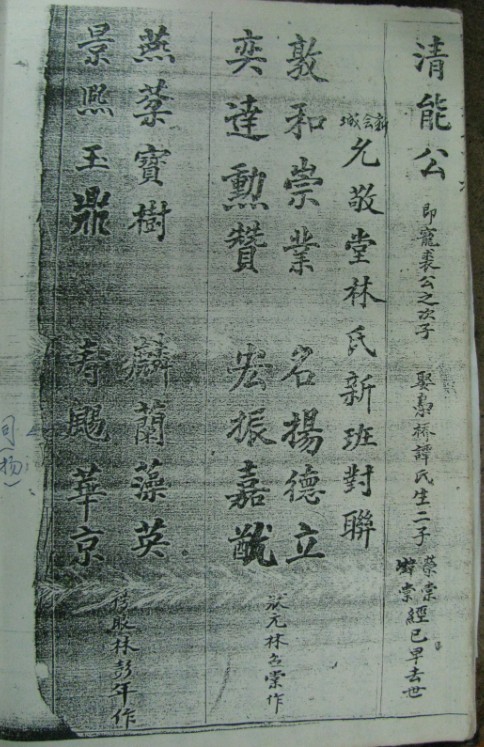 清能公 即寵裘公之次子 娶馬橋譚氏生二子 榮崇 崇經已早去世
新會城 允敬堂林氏新班對聯
敦和崇業 名揚德立
奕達勳贊 宏振嘉猷
狀元林召棠作
燕棻寶樹 麟蘭藻英
景熙玉鼎 壽颺華京
林彭年作
同(揚)